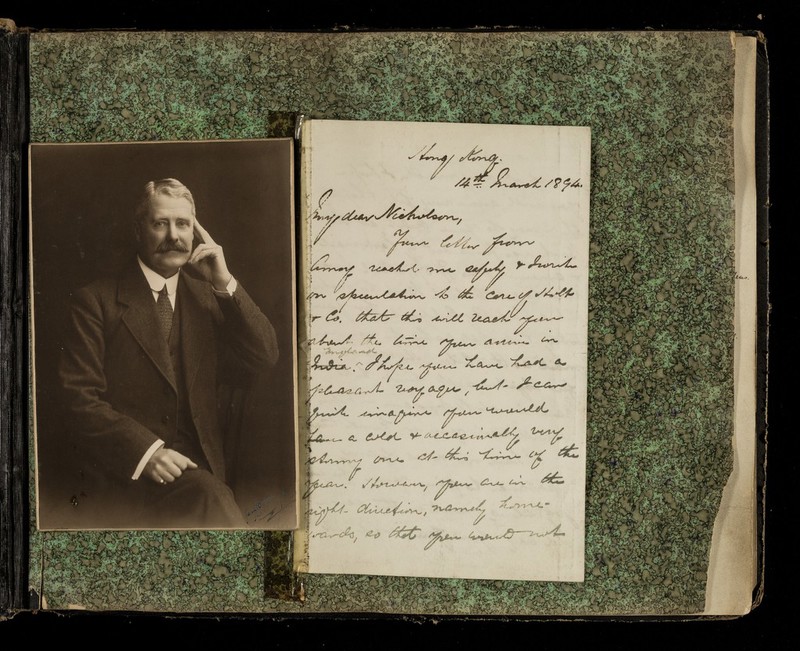 Hong Kong.
14th March 1894.
My dear Nicholson,
Your letter from
Amoy reached me safely & I write
on speculation to the care of Holt
& Co. that this will reach you
about the time you arrive in
England
India. I hope you have had a
pleasant voyage, but I can
quite imagine you would
have a cold & occasionally very
stormy one at this time of the
year. However, you are in the
right direction, namely home-
wards, so that you would not